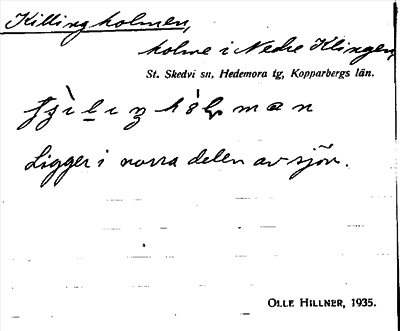 Killingholmen,
holme i Nedre Klingen,
St. Skedvi sn, Hedemora tg, Kopparbergs län.
Ligger i norra delen av sjön.
OLLE HILLNER, 1935.